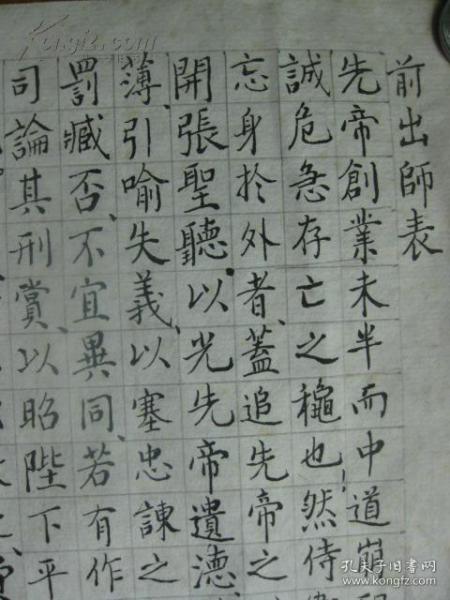 前出師表
先帝創業未半而中道崩
誠危急存亡之龝也！然侍
忘身於外者、蓋追先帝之
開張聖聽。以光先帝遺德
薄、引喻失義、以塞忠諫之
罰臧否、不宜異同、若有作
司論其刑賞、以昭陛下平
孔夫子旧书网
www.kongfz.com